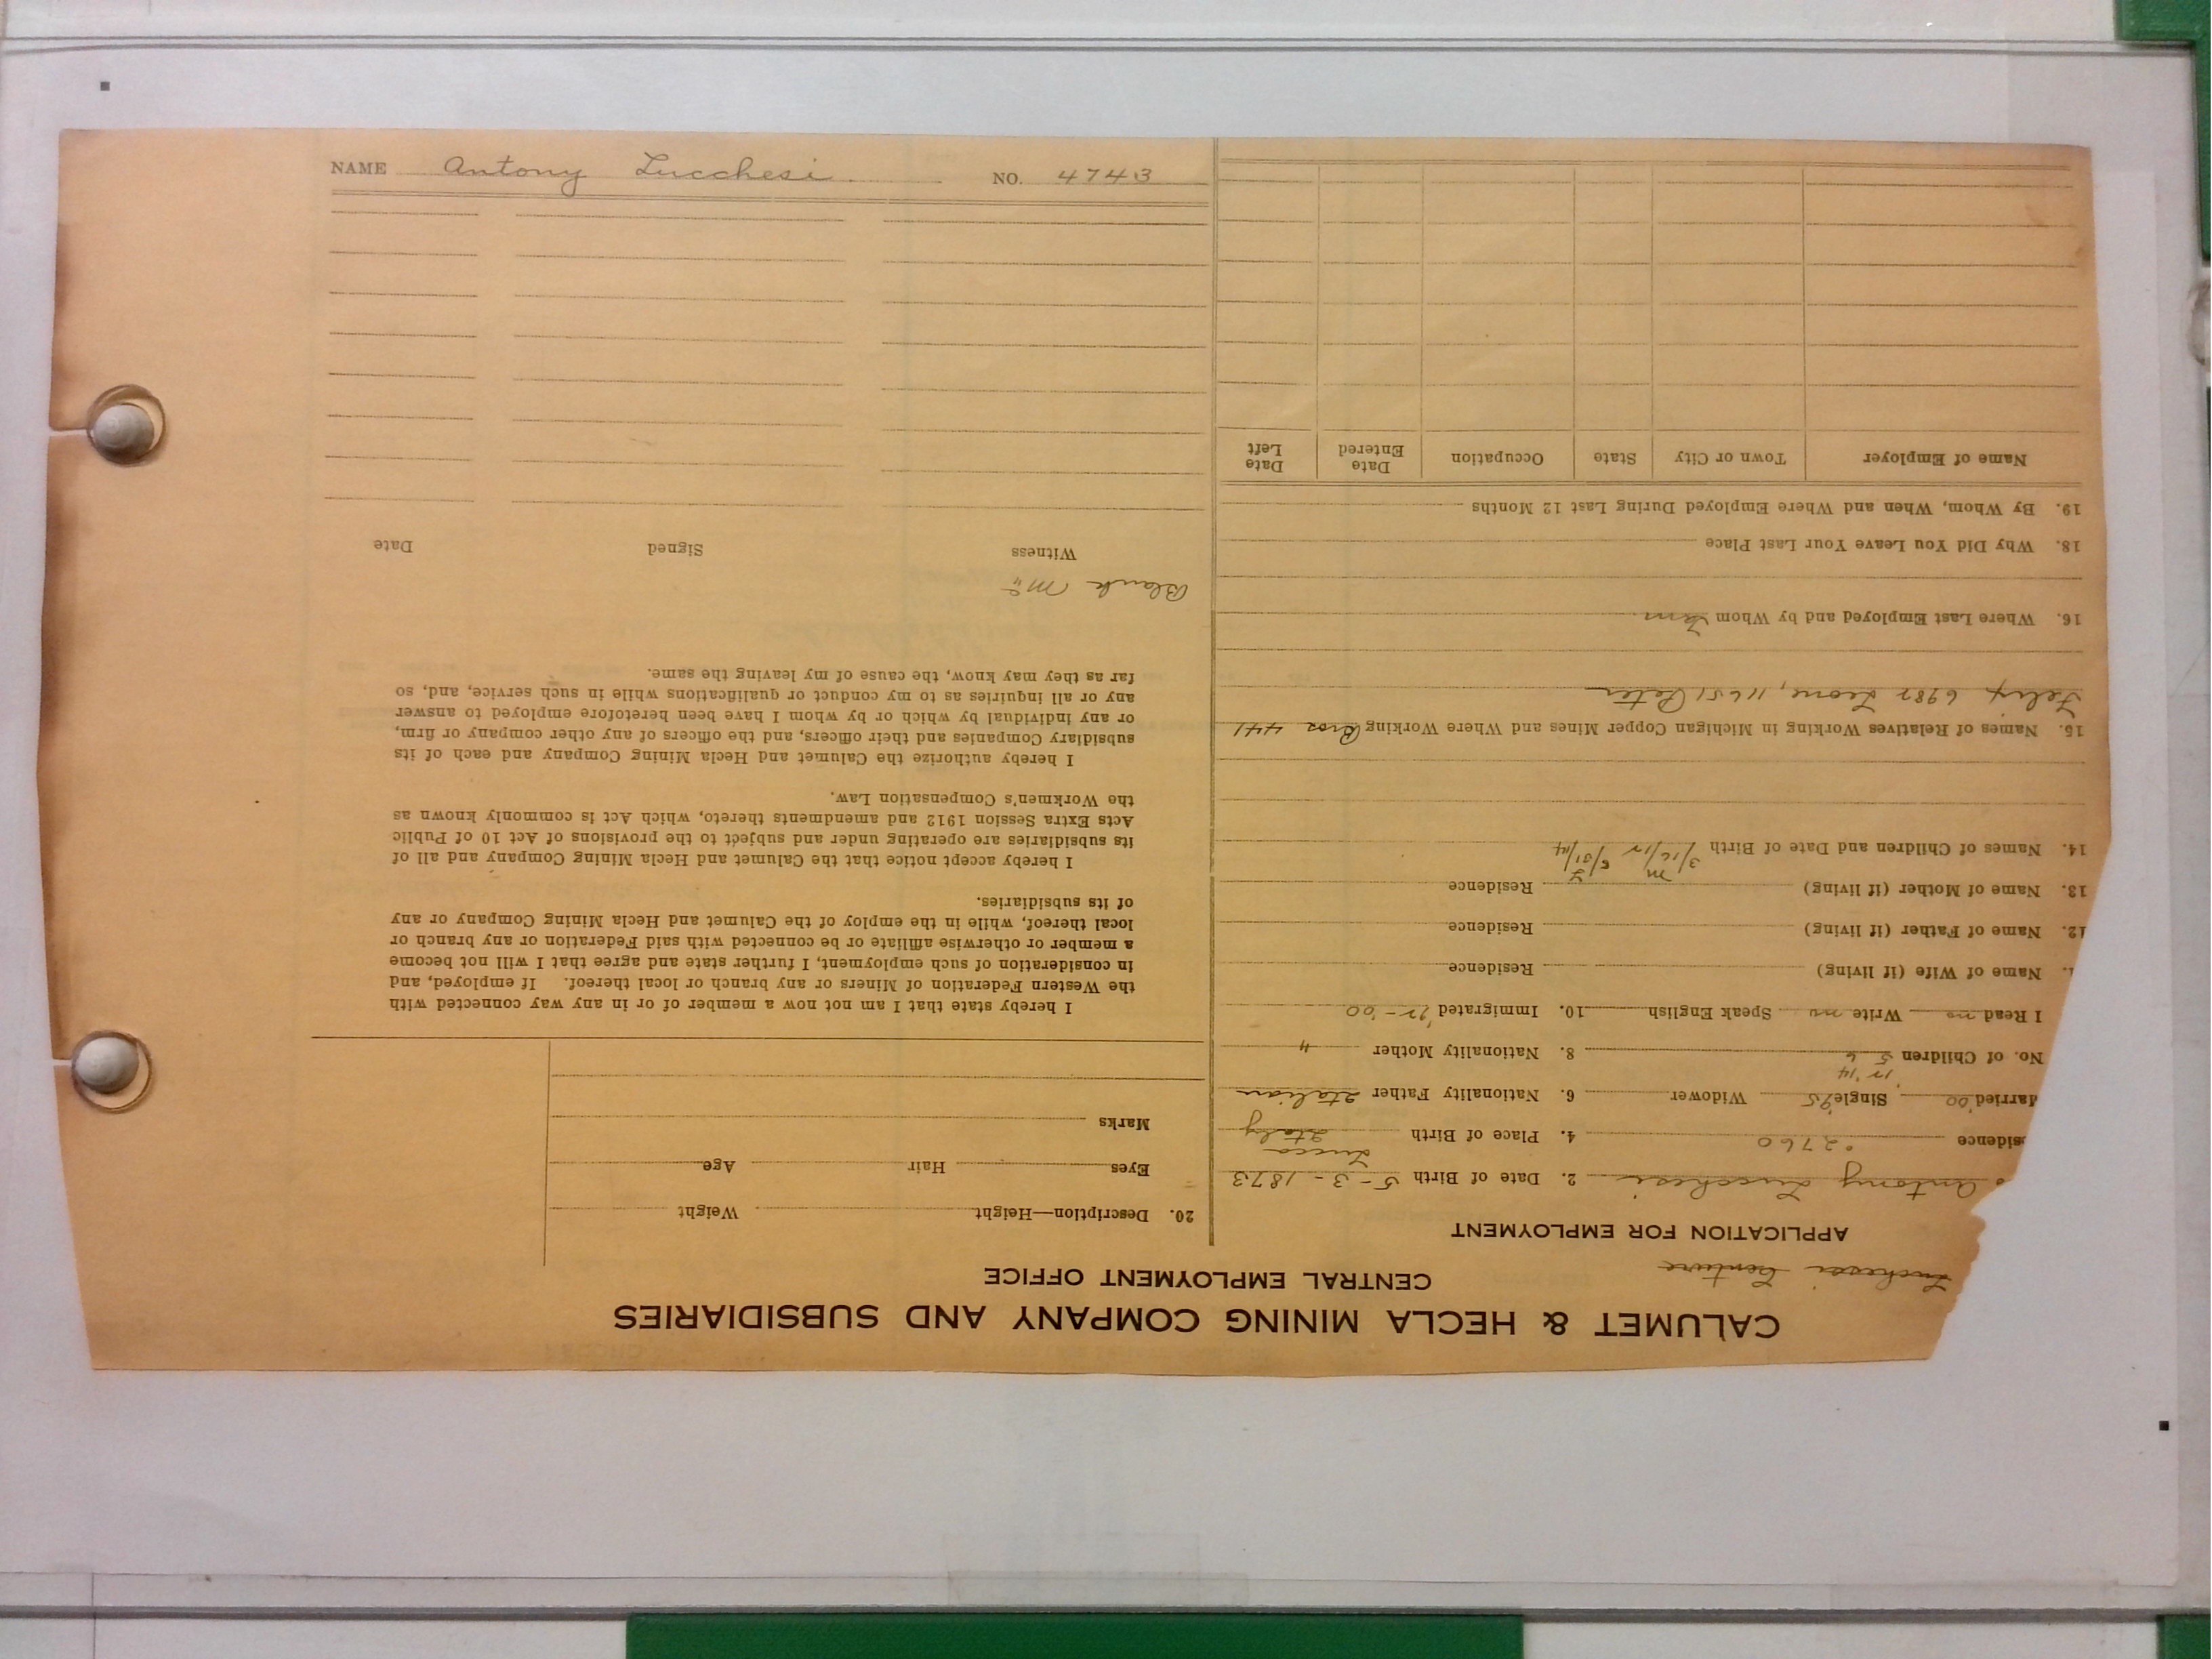 CALUMET & HECLA MINING COMPANY AND SUBSIDIARIES
CENTRAL EMPLOYMENT OFFICE
APPLICATION FOR EMPLOYMENT
Antony Lucchesi 2. Date of Birth 5-3-1873
sidence 2760 4. Place of Birth Lucca Italy
arried '00 Single '95 Widower 6. Nationality Father Italian
12 '14
No. of Children 5 6 8. Nationality Mother "
I Read no Write no Speak English 10. Immigrated '92-'00
Name of Wife (if living) Residence
12. Name of Father (if living) Residence
13. Name of Mother (if living) Residence
14. Names of Children and Date of Birth M 3/16/12 F 5/31/14
15. Names of Relatives Working in Michigan Copper Mines and Where Working Bros 441
Felix 6987 Leone, 11651 Peter
16. Where Last Employed and by Whom Tam
18. Why Did You Leave Your Last Place
19. By Whom, When and Where Employed During Last 12 Months
Name of Employer Town or City State Occupation Date Entered Date Left
20. Description—Height Weight
Eyes Hair Age
Marks
I hereby state that I am not now a member of or in any way connected with
the Western Federation of Miners or any branch or local thereof. If employed, and
in consideration of such employment, I further state and agree that I will not become
a member or otherwise affiliate or be connected with said Federation or any branch or
local thereof, while in the employ of the Calumet and Hecla Mining Company or any
of its subsidiaries.
I hereby accept notice that the Calumet and Hecla Mining Company and all of
its subsidiaries are operating under and subject to the provisions of Act 10 of Public
Acts Extra Session 1912 and amendments thereto, which Act is commonly known as
the Workmen's Compensation Law.
I hereby authorize the Calumet and Hecla Mining Company and each of its
subsidiary Companies and their officers, and the officers of any other company or firm,
or any individual by which or by whom I have been heretofore employed to answer
any or all inquiries as to my conduct or qualifications while in such service, and, so
far as they may know, the cause of my leaving the same.
Blank
Witness Signed Date
NAME Antony Lucchesi NO. 4743